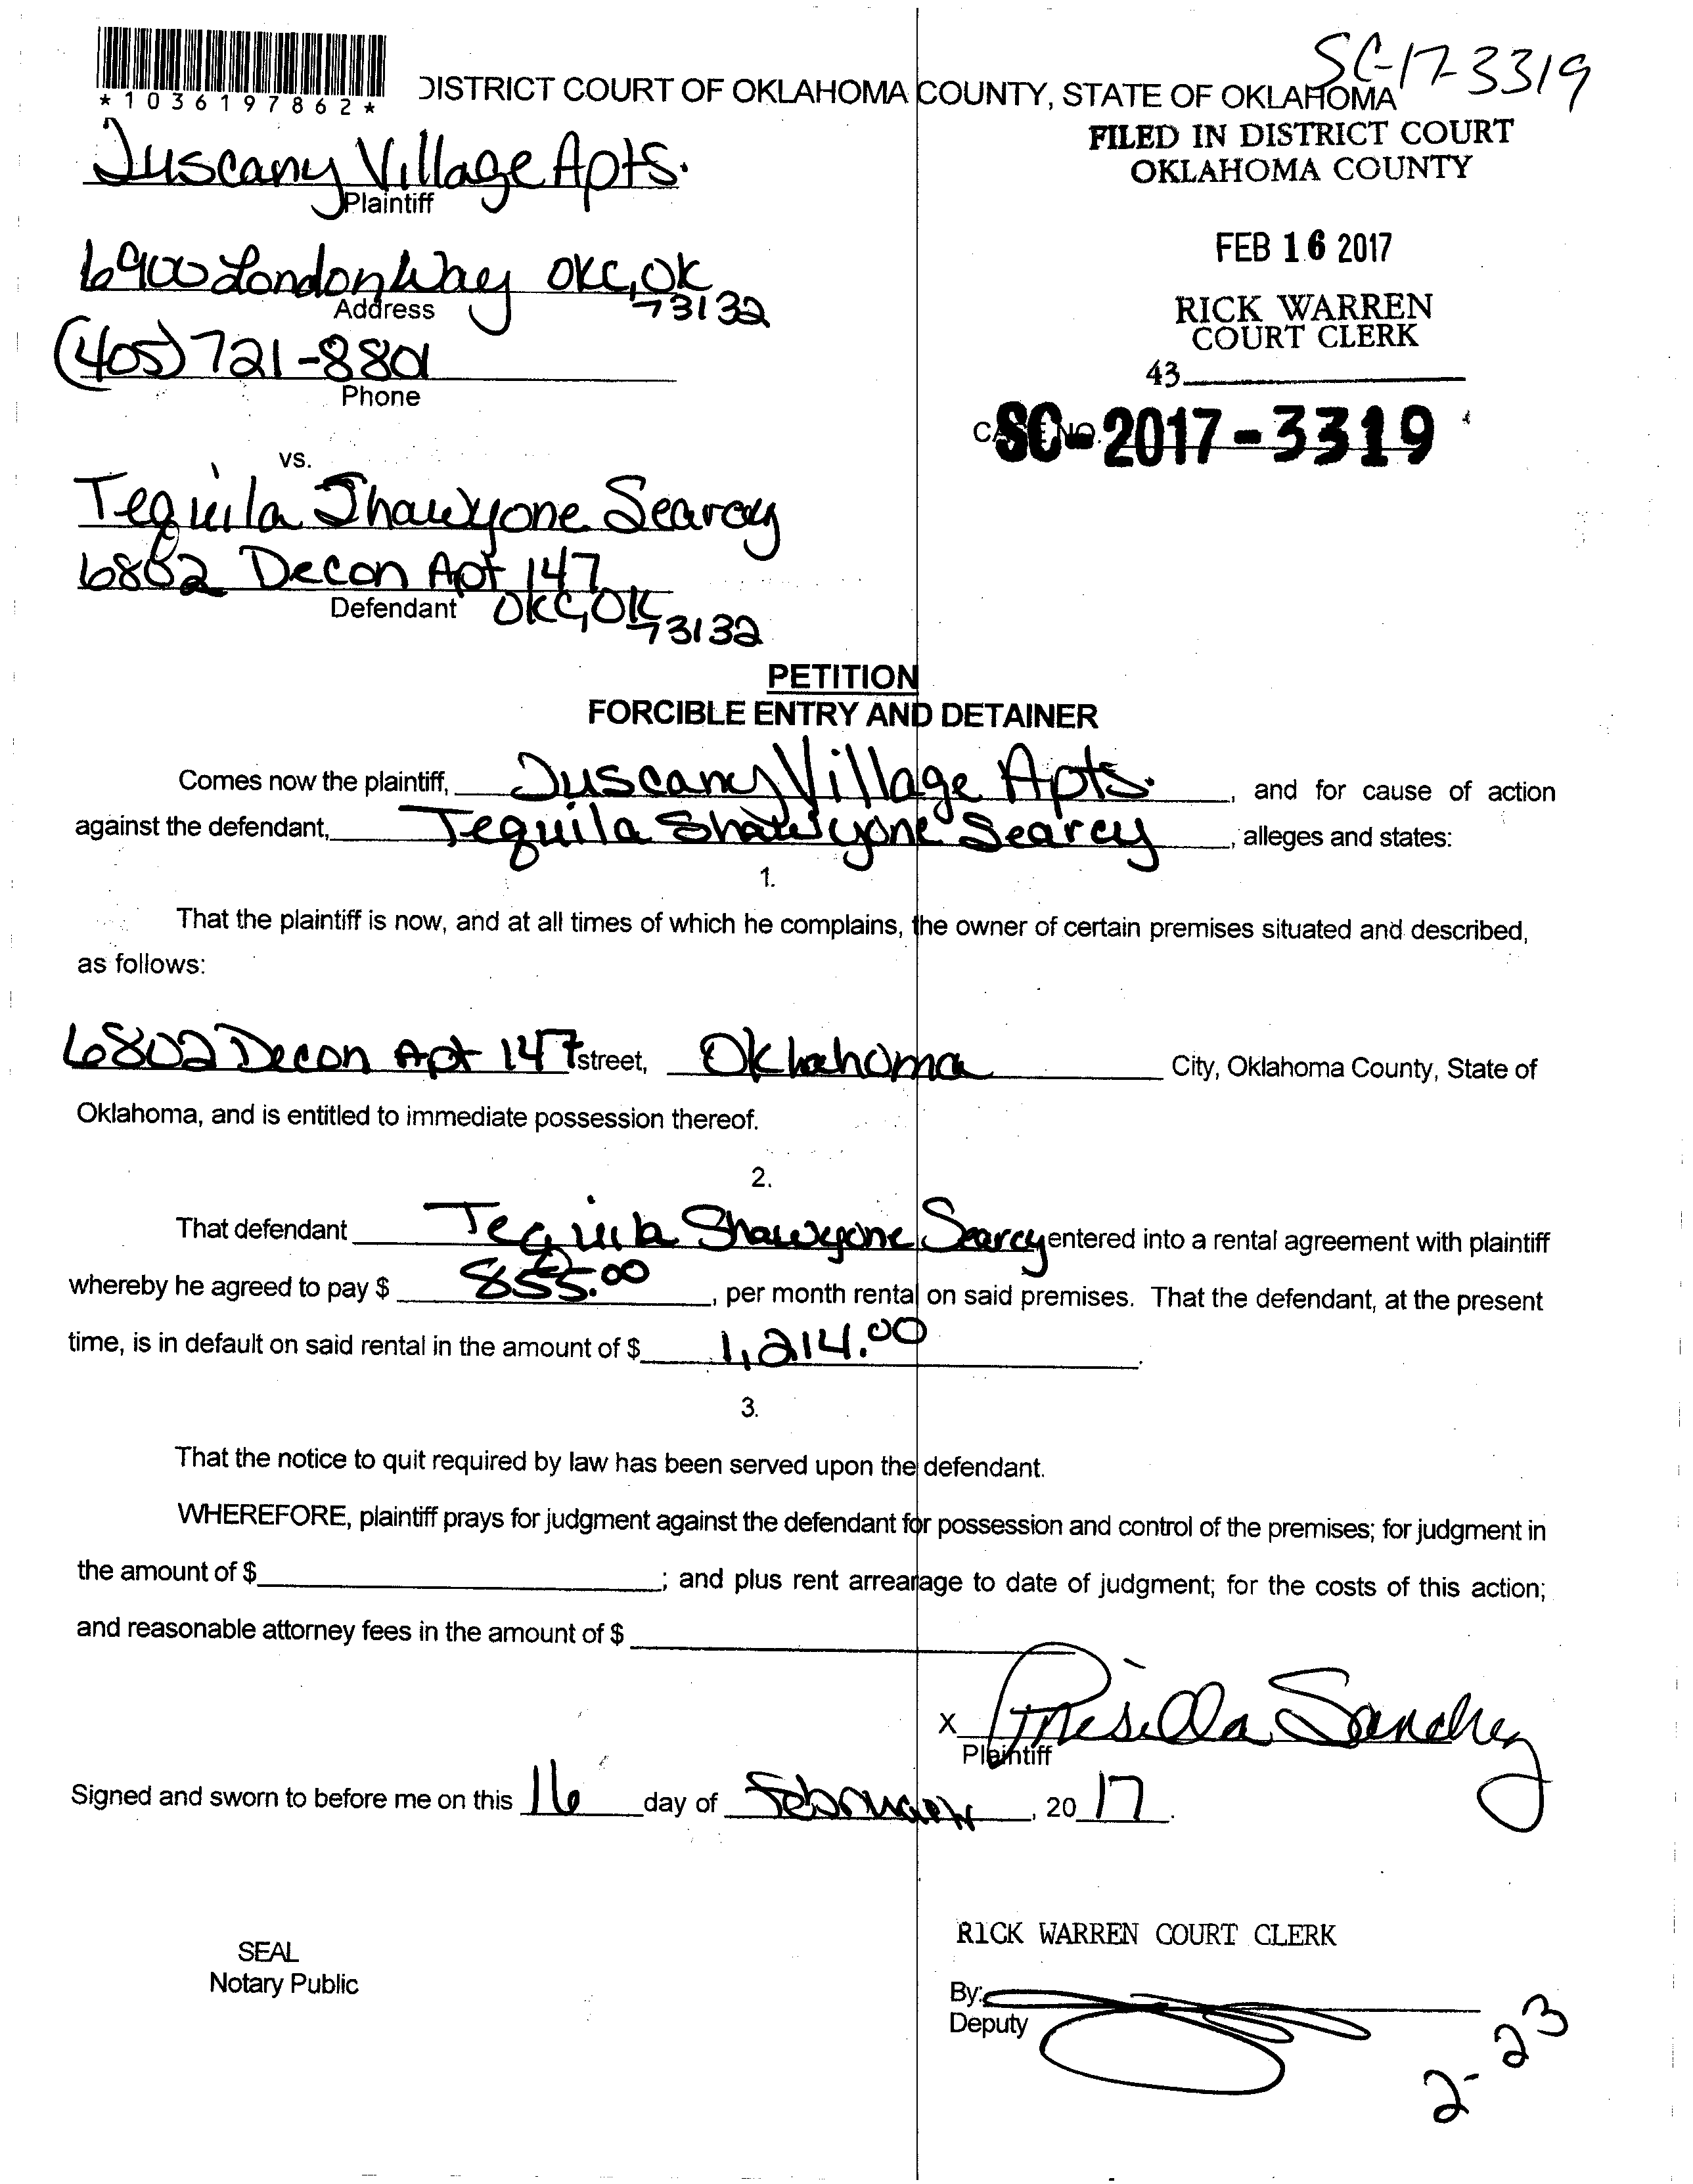 SC-17-3319
*1036197862*
DISTRICT COURT OF OKLAHOMA COUNTY, STATE OF OKLAHOMA
FILED IN DISTRICT COURT
OKLAHOMA COUNTY
Tuscany Village Apts.
Plaintiff
FEB 16 2017
6900 London Way OKC, OK
73132
Address
RICK WARREN
COURT CLERK
(405) 721-8801
Phone
43
CASE NO.
SC-2017-3319
vs.
Tequila Shawyone Searcy
6802 Decon Apt 147
Defendant OKC, OK 73132
PETITION
FORCIBLE ENTRY AND DETAINER
Comes now the plaintiff, Tuscany Village Apts. , and for cause of action
against the defendant, Tequila Shawyone Searcy , alleges and states:
1.
That the plaintiff is now, and at all times of which he complains, the owner of certain premises situated and described,
as follows:
6802 Decon Apt 147 street, Oklahoma City, Oklahoma County, State of
Oklahoma, and is entitled to immediate possession thereof.
2.
That defendant Tequila Shawyone Searcy entered into a rental agreement with plaintiff
whereby he agreed to pay $ 855.00 , per month rental on said premises. That the defendant, at the present
time, is in default on said rental in the amount of $ 1,214.00 .
3.
That the notice to quit required by law has been served upon the defendant.
WHEREFORE, plaintiff prays for judgment against the defendant for possession and control of the premises; for judgment in
the amount of $ ; and plus rent arrearage to date of judgment; for the costs of this action;
and reasonable attorney fees in the amount of $
X Prisilla Sanchez
Plaintiff
Signed and sworn to before me on this 16 day of February , 20 17 .
RICK WARREN COURT CLERK
SEAL
Notary Public
By:
Deputy
2-23